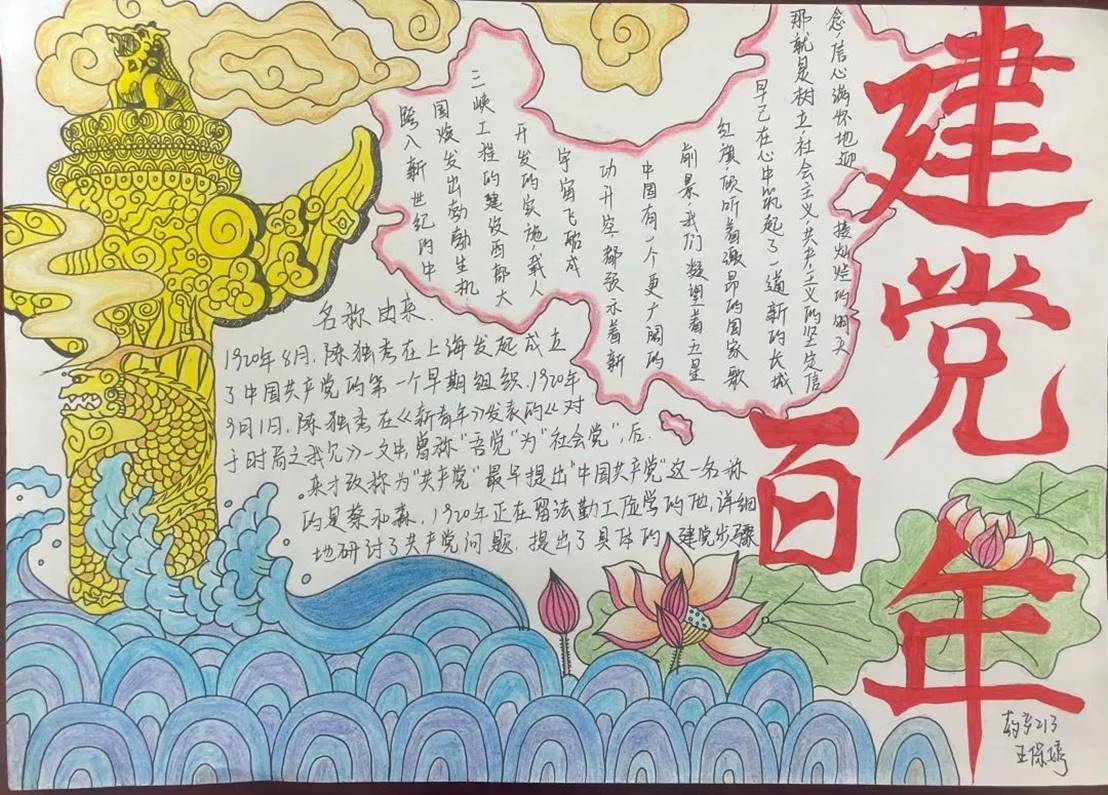 建党百年
跨入新世纪的中
国焕发出勃勃生机.
三峡工程的建设西部大
开发的实施载人
宇宙飞船成
功升空.都预示着新
中国有一个更广阔的
前景.我们凝望着五星
红旗,倾听着激昂的国家歌
早已在心中筑起了一道新的长城
那就是树立社会主义共产主义的坚定信
念,信心满怀地迎接灿烂的明天
名称由来.
1920年8月,陈独秀在上海发起成立
了中国共产党的第一个早期组织.1920年
9月1日,陈独秀在《新青年》发表的《对
于时局之我见》一文中,曾称"吾党"为"社会党",后.
来才改称为"共产党"最早提出"中国共产党"这一名称
的是蔡和森,1920年正在留法勤工俭学的他,详细
地研讨了共产党问题,提出了具体的建党步骤
213